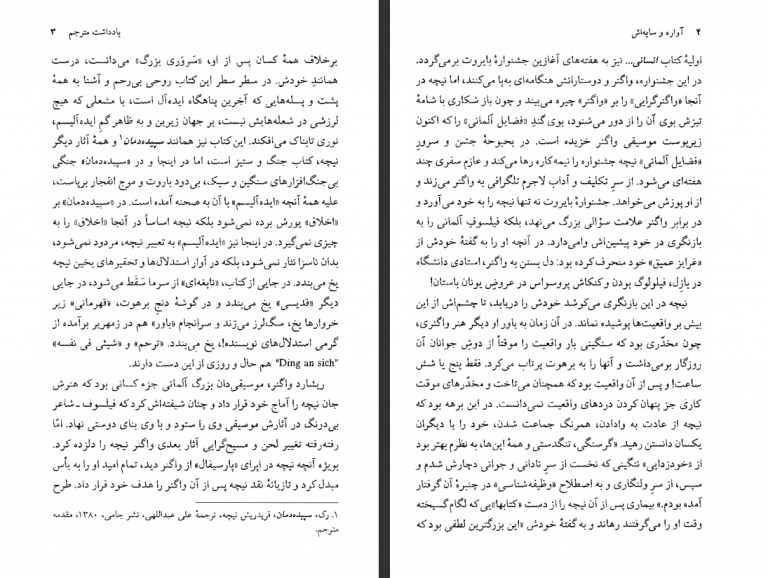 یادداشت مترجم ۳
برخلاف همهٔ کسان پس از او، «سَروَری بزرگ» می‌دانست، درست
همانندِ خودش. در سطر سطر این کتاب روحی بی‌رحم و آشنا به همهٔ
پشت و پسله‌هایی که آخرین پناهگاه ایده‌آل است، با مشعلی که هیچ
لرزشی در شعله‌هایش نیست، بر جهان زیرین و به ظاهر گمِ ایده‌آلیسم،
نوری تابناک می‌افکند. این کتاب نیز همانند سپیده‌دمان۱ و همهٔ آثار دیگر
نیچه، کتاب جنگ و ستیز است، اما در اینجا و در «سپیده‌دمان» جنگی
بی‌جنگ‌افزارهای سنگین و سبک، بی‌دود باروت و موج انفجار برپاست،
علیه همهٔ آنچه «ایده‌آلیسم» یا آن به صحنه آمده است. در «سپیده‌دمان» بر
«اخلاق» یورش برده نمی‌شود بلکه نیچه اساساً در آنجا «اخلاق» را به
چیزی نمی‌گیرد. در اینجا نیز «ایده‌آلیسم» به تعبیر نیچه، مردود نمی‌شود،
بدان ناسزا نثار نمی‌شود، بلکه در آوار استدلال‌ها و تحقیرهای یخین نیچه
یخ می‌بندد. در جایی از کتاب، «نابغه‌ای» از سرما سَقَط می‌شود، در جایی
دیگر «قدیسی» یخ می‌بندد و در گوشهٔ دنجِ برهوت، «قهرمانی» زیر
خروارها یخ، سگ‌لرز می‌زند و سرانجام «باور» هم در زمهریر برآمده از
گرمی استدلال‌های نویسنده!، یخ می‌بندد. «ترحم» و «شیئی فی نفسه»
"Ding an sich" هم حال و روزی از این دست دارند.
ریشارد واگنر، موسیقی‌دان بزرگ آلمانی جزء کسانی بود که هنرش
جان نیچه را آماج خود قرار داد و چنان شیفته‌اش کرد که فیلسوف ـ شاعر
بی‌درنگ در آثارش موسیقی وی را ستود و با وی بنای دوستی نهاد. امّا
رفته‌رفته تغییر لحن و مسیح‌گرایی آثار بعدی واگنر نیچه را دلزده کرد.
بویژه آنچه نیچه در اپرای «پارسیفال» از واگنر دید، تمام امید او را به یأس
مبدل کرد و تازیانهٔ نقد نیچه پس از آن واگنر را هدف خود قرار داد. طرح
۱. رک، سپیده‌دمان، فریدریش نیچه، ترجمهٔ علی عبداللهی، نشر جامی، ۱۳۸۰، مقدمه
مترجم.
۴ آواره و سایه‌اش
اولیهٔ کتاب انسانی... نیز به هفته‌های آغازین جشنوارهٔ بایروت برمی‌گردد.
در این جشنواره، واگنر و دوستارانش هنگامه‌ای به‌پا می‌کنند، اما نیچه در
آنجا «واگنرگرایی» را بر «واگنر» چیره می‌بیند و چون باز شکاری با شامهٔ
تیزش بوی آن را از دور می‌شنود، بوی گندِ «فضایل آلمانی» را که اکنون
زیرپوست موسیقی واگنر خزیده است. در بحبوحهٔ جشن و سرورِ
«فضایل آلمانی» نیچه جشنواره را نیمه‌کاره رها می‌کند و عازم سفری چند
هفته‌ای می‌شود. از سرِ تکلیف و آداب لاجرم تلگرافی به واگنر می‌زند و
از او پوزش می‌خواهد. جشنوارهٔ بایروت نه تنها نیچه را به خود می‌آورد و
در برابر واگنر علامت سؤالی بزرگ می‌نهد، بلکه فیلسوفِ آلمانی را به
بازنگری در خود پیشین‌اش وامی‌دارد. در آنچه او را به گفتهٔ خودش از
«غرایز عمیق» خود منحرف کرده بود: دل بستن به واگنر، استادی دانشگاه
در بازِل، فیلولوگ بودن و کنکاش پروسواس در عروضِ یونان باستان!
نیچه در این بازنگری می‌کوشد خودش را دریابد، تا چشم‌اش از این
بیش بر واقعیت‌ها پوشیده نماند. در آن زمان به باور او دیگر هنر واگنری،
چون مخدّری بود که سنگینی بار واقعیت را موقتاً از دوش جوانان آن
روزگار برمی‌داشت و آنها را به برهوت پرتاب می‌کرد. فقط پنج یا شش
ساعت! و پس از آن واقعیت بود که همچنان می‌تاخت و مخدّرهای موقت
کاری جز پنهان کردن دردهای واقعیت نمی‌دانست. در این برهه بود که
نیچه از عادت به وادادن، همرنگ جماعت شدن، خود را با دیگران
یکسان دانستن رهید. «گرسنگی، تنگدستی و همهٔ این‌ها، به نظرم بهتر بود
از «خودزدایی» ننگینی که نخست از سرِ نادانی و جوانی دچارش شدم و
سپس، از سرِ ولنگاری و به اصطلاح «وظیفه‌شناسی» در چنبرهٔ آن گرفتار
آمده بودم.» بیماری پس از آن نیچه را از دست «کتابها»یی که لگام گسیخته
وقت او را می‌گرفتند رهاند و به گفتهٔ خودش «این بزرگترین لطفی بود که